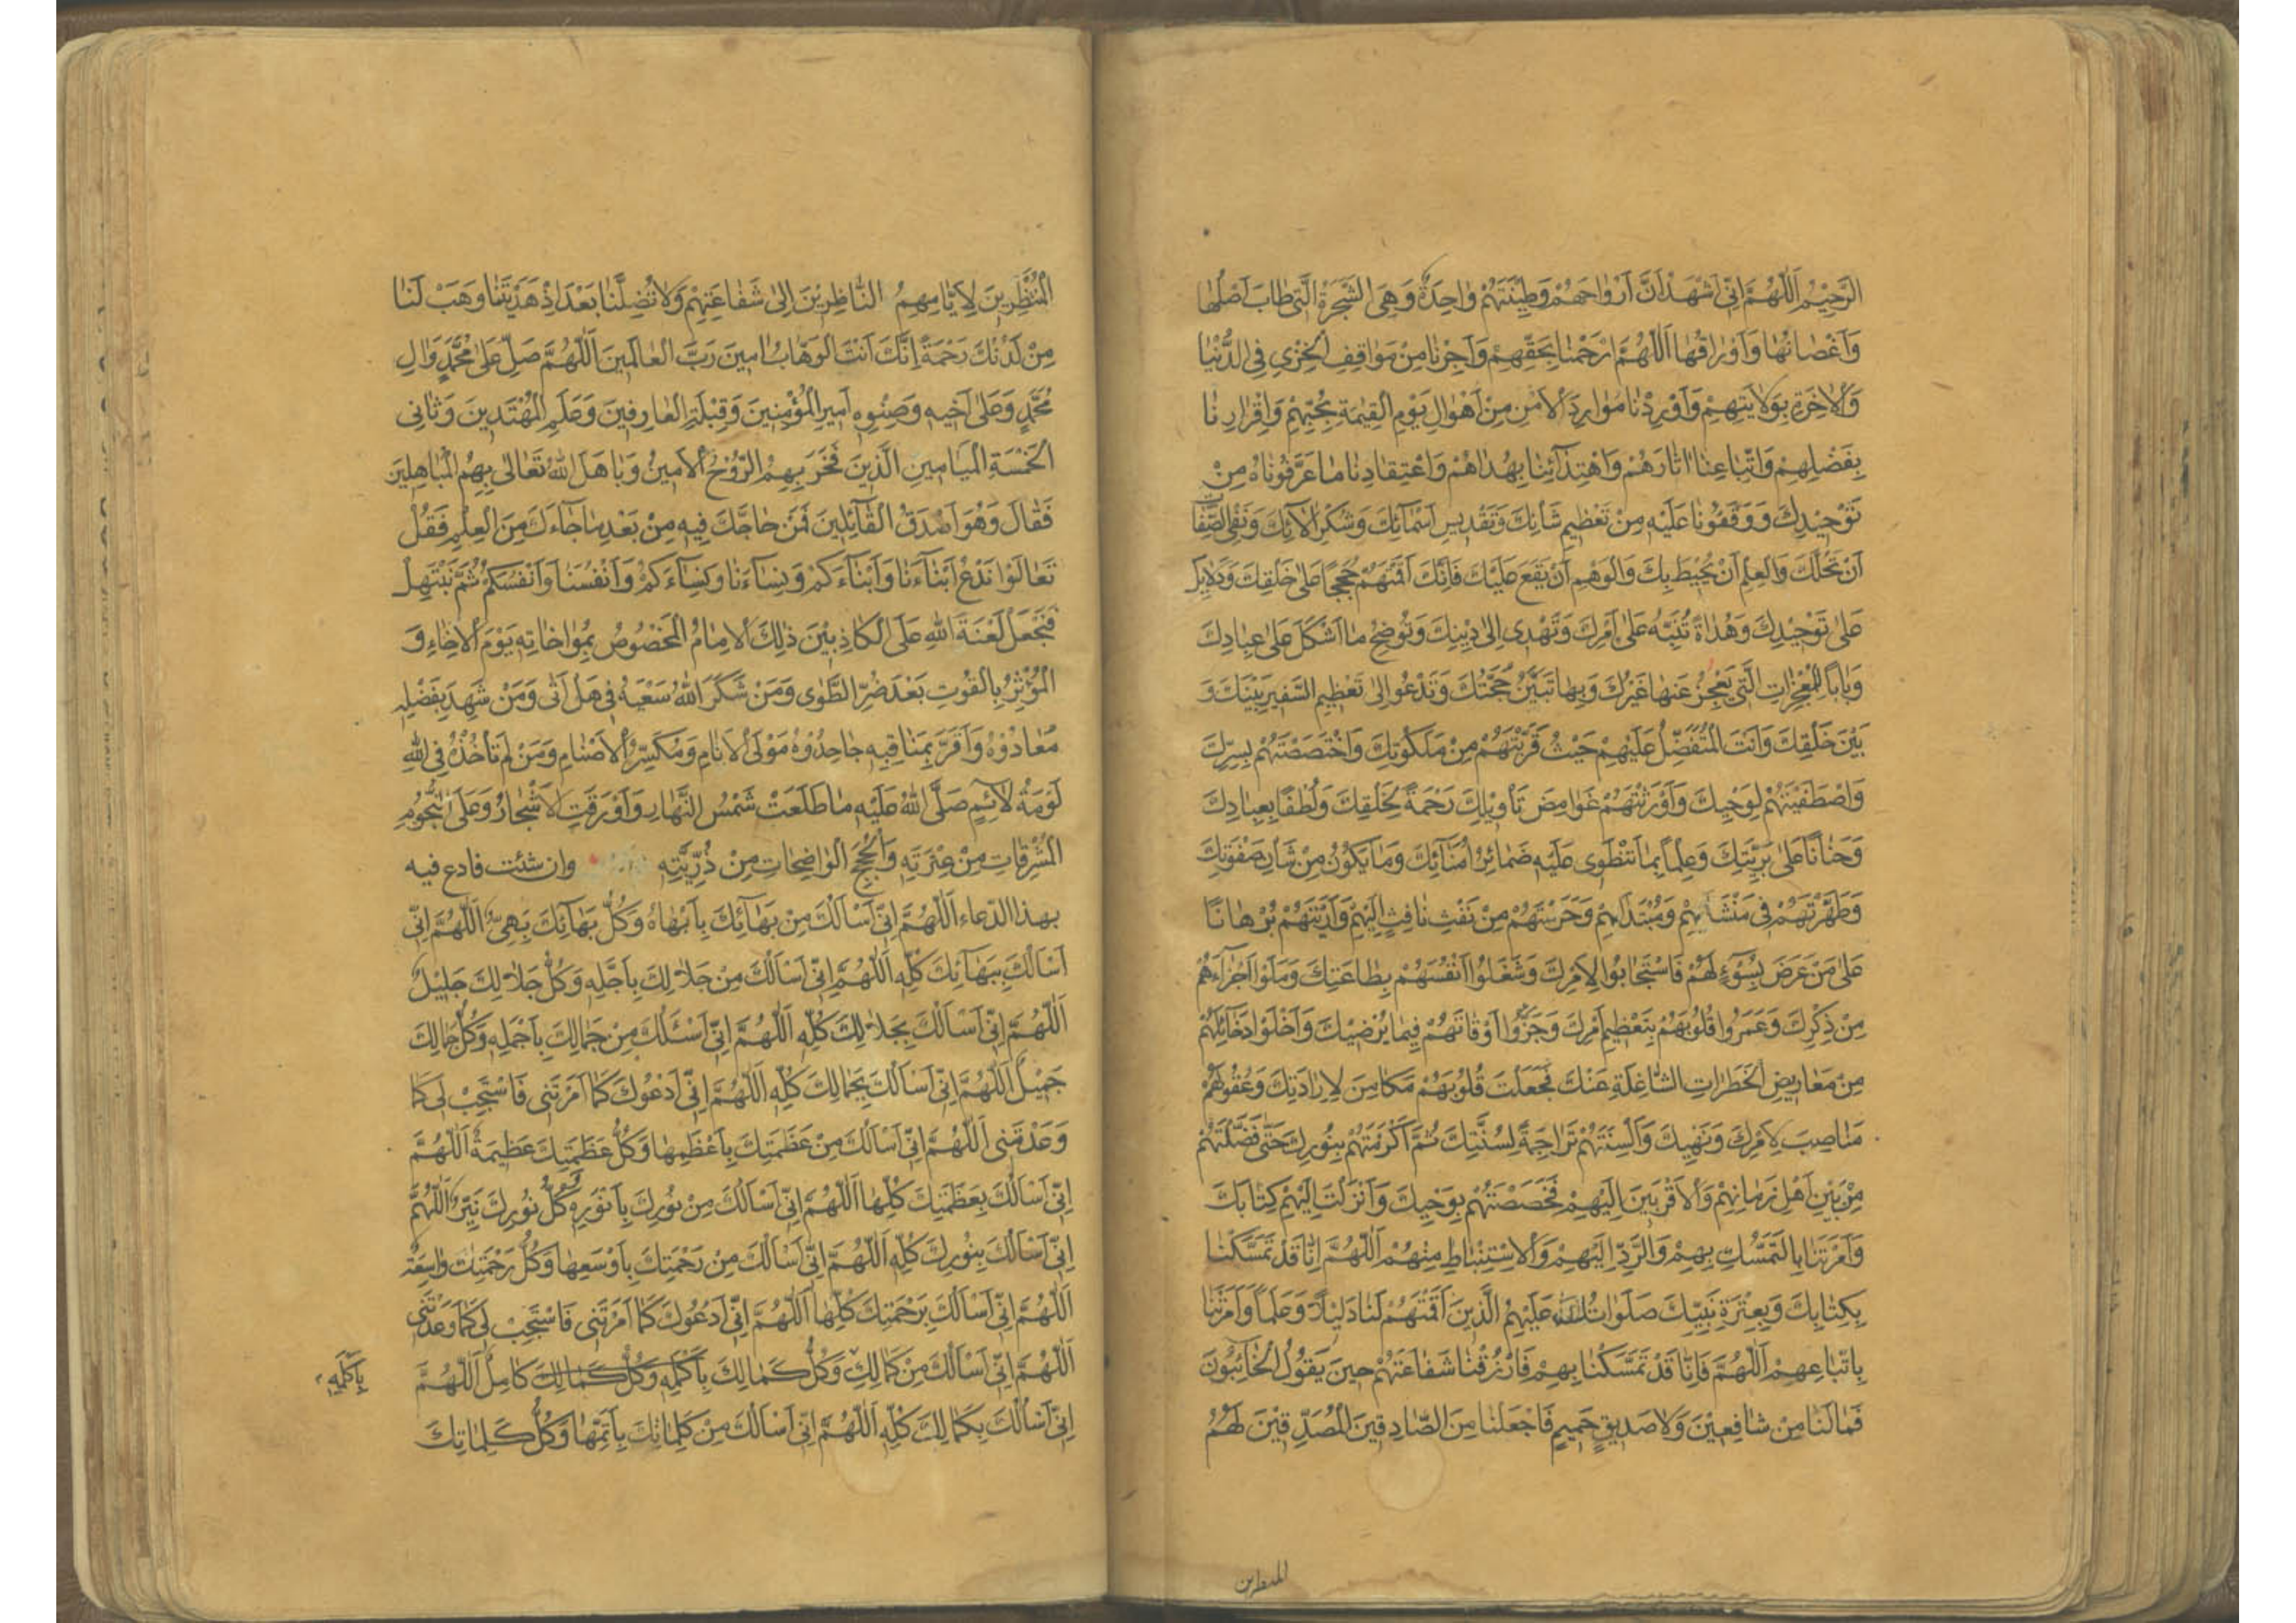 الرَّحِيْمُ اَللّٰهُمَّ اِنّى اَشْهَدُ اَنَّ اَرْوٰاحَهُمْ وَطِيْنَتَهُمْ وٰاحِدَةٌ وَهِىَ الشَّجَرَةُ الَّتى طٰابَ اَصْلُهٰا
وَاَغْصٰانُهٰا وَاَوْرٰاقُهٰا اَللّٰهُمَّ ارْحَمْنٰا بِحَقِّهِمْ وَاَجِرْنٰا مِنْ مَوٰاقِفِ الْخِزْىِ فِى الدُّنْيٰا
وَالْاٰخِرَةِ بِوَلاٰيَتِهِمْ وَاَوْرِدْنٰا مَوٰارِدَ الْاَمْنِ مِنْ اَهْوٰالِ يَوْمِ الْقِيٰمَةِ بِحُبِّهِمْ وَاِقْرٰارِنٰا
بِفَضْلِهِمْ وَاتِّبٰاعِنٰا اٰثٰارَهُمْ وَاهْتِدٰآئِنٰا بِهُدٰاهُمْ وَاعْتِقٰادِنٰا مٰا عَرَّفُونٰاهُ مِنْ
تَوْحِيْدِكَ وَوَقَفُونٰا عَلَيْهِ مِنْ تَعْظِيمِ شَأْنِكَ وَتَقْدِيسِ اَسْمٰآئِكَ وَشُكْرِ اٰلاٰئِكَ وَنَفْىِ الصِّفٰاتِ
اَنْ تَحُلَّكَ وَالْعِلْمِ اَنْ يُحِيْطَ بِكَ وَالْوَهْمِ اَنْ يَقَعَ عَلَيْكَ فَاِنَّكَ اَقَمْتَهُمْ حُجَجًا عَلىٰ خَلْقِكَ وَدَلاٰئِلَ
عَلىٰ تَوْحِيْدِكَ وَهُدٰاةً تُنَبِّهُ عَلىٰ اَمْرِكَ وَتَهْدى اِلىٰ دِيْنِكَ وَتُوْضِحُ مٰا اَشْكَلَ عَلىٰ عِبٰادِكَ
وَبٰابًا لِلْمُعْجِزٰاتِ الَّتى يَعْجِزُ عَنْهٰا غَيْرُكَ وَبِهٰا تَبَيَّنُ حُجَّتُكَ وَتَدْعُو اِلىٰ تَعْظِيمِ السَّفِيرِ بَيْنَكَ وَ
بَيْنَ خَلْقِكَ وَاَنْتَ الْمُتَفَضِّلُ عَلَيْهِمْ حَيْثُ قَرَّبْتَهُمْ مِنْ مَلَكُوتِكَ وَاخْتَصَصْتَهُمْ بِسِرِّكَ
وَاصْطَفَيْتَهُمْ لِوَحْيِكَ وَاَوْرَثْتَهُمْ غَوٰامِضَ تَأْوِيْلِكَ رَحْمَةً بِخَلْقِكَ وَلُطْفًا بِعِبٰادِكَ
وَحَنٰانًا عَلىٰ بَرِيَّتِكَ وَعِلْمًا بِمٰا تَنْطَوى عَلَيْهِ ضَمٰائِرُ اُمَنٰآئِكَ وَمٰا يَكُوْنُ مِنْ شَأْنِ صَفْوَتِكَ
وَطَهَّرْتَهُمْ فى مَنْشَأِهِمْ وَمُبْتَدَأِهِمْ وَحَرَسْتَهُمْ مِنْ نَفْثِ نٰافِثٍ اِلَيْهِمْ وَاَرَيْتَهُمْ بُرْهٰانًا
عَلىٰ مَنْ عَرَضَ بِسُوْءٍ لَهُمْ فَاسْتَجٰابُوا لِاَمْرِكَ وَشَغَلُوا اَنْفُسَهُمْ بِطٰاعَتِكَ وَمَلَؤُا اَجْزٰاءَهُمْ
مِنْ ذِكْرِكَ وَعَمَرُوا قُلُوْبَهُمْ بِتَعْظِيمِ اَمْرِكَ وَجَزَّؤُا اَوْقٰاتَهُمْ فِيمٰا يُرْضيْكَ وَاَخْلَوْا دَخٰآئِلَهُمْ
مِنْ مَعٰاريضِ الْخَطَرٰاتِ الشّٰاغِلَةِ عَنْكَ فَجَعَلْتَ قُلُوْبَهُمْ مَكٰامِنَ لِاِرٰادَتِكَ وَعُقُوْلَهُمْ
مَنٰاصِبَ لِاَمْرِكَ وَنَهْيِكَ وَاَلْسِنَتَهُمْ تَرٰاجِمَةً لِسُنَّتِكَ ثُمَّ اَكْرَمْتَهُمْ بِنُوْرِكَ حَتّٰى فَضَّلْتَهُمْ
مِنْ بَيْنِ اَهْلِ زَمٰانِهِمْ وَالْاَقْرَبيْنَ اِلَيْهِمْ فَخَصَصْتَهُمْ بِوَحْيِكَ وَاَنْزَلْتَ اِلَيْهِمْ كِتٰابَكَ
وَاَمَرْتَنٰا بِالتَّمَسُّكِ بِهِمْ وَالرَّدِّ اِلَيْهِمْ وَالْاِسْتِنْبٰاطِ مِنْهُمْ اَللّٰهُمَّ اِنّٰا قَدْ تَمَسَّكْنٰا
بِكِتٰابِكَ وَبِعِتْرَةِ نَبِيِّكَ صَلَوٰاتُكَ عَلَيْهِمُ الَّذينَ اَقَمْتَهُمْ لَنٰا دَلِيْلاً وَعَلَمًا وَاَمَرْتَنٰا
بِاتِّبٰاعِهِمْ اَللّٰهُمَّ فَاِنّٰا قَدْ تَمَسَّكْنٰا بِهِمْ فَارْزُقْنٰا شَفٰاعَتَهُمْ حينَ يَقُوْلُ الْخٰآئِبُوْنَ
فَمٰا لَنٰا مِنْ شٰافِعيْنَ وَلاٰ صَديقٍ حَميمٍ فَاجْعَلْنٰا مِنَ الصّٰادِقينَ الْمُصَدِّقيْنَ لَهُمُ
المنتظرين
الْمُنْتَظِرينَ لِاَيّٰامِهِمُ النّٰاظِريْنَ اِلىٰ شَفٰاعَتِهِمْ وَلاٰ تُضِلَّنٰا بَعْدَ اِذْ هَدَيْتَنٰا وَهَبْ لَنٰا
مِنْ لَدُنْكَ رَحْمَةً اِنَّكَ اَنْتَ الْوَهّٰابُ اٰمينَ رَبَّ الْعٰالَمينَ اَللّٰهُمَّ صَلِّ عَلىٰ مُحَمَّدٍ وَاٰلِ
مُحَمَّدٍ وَعَلىٰ اَخيهِ وَصِنْوِهِ اَميرِ الْمُؤْمِنينَ وَقِبْلَةِ الْعٰارِفينَ وَعَلَمِ الْمُهْتَدينَ وَثٰانِى
الْخَمْسَةِ الْمَيٰامينِ الَّذينَ فَخَرَ بِهِمُ الرُّوْحُ الْاَمينُ وَبٰاهَلَ اللّٰهُ تَعٰالىٰ بِهِمُ الْمُبٰاهِلينَ
فَقٰالَ وَهُوَ اَصْدَقُ الْقٰآئِلينَ فَمَنْ حٰاجَّكَ فيهِ مِنْ بَعْدِ مٰا جٰآءَكَ مِنَ الْعِلْمِ فَقُلْ
تَعٰالَوْا نَدْعُ اَبْنٰآءَنٰا وَاَبْنٰآءَكُمْ وَنِسٰآءَنٰا وَنِسٰآءَكُمْ وَاَنْفُسَنٰا وَاَنْفُسَكُمْ ثُمَّ نَبْتَهِلْ
فَنَجْعَلْ لَعْنَةَ اللّٰهِ عَلَى الْكٰاذِبيْنَ ذٰلِكَ الْاِمٰامُ الْمَخْصُوصُ بِمُوٰاخٰاتِهِ يَوْمَ الْاِخٰاءِ وَ
الْمُؤْثِرُ بِالْقُوتِ بَعْدَ ضُرِّ الطَّوٰى وَمَنْ شَكَرَ اللّٰهُ سَعْيَهُ فى هَلْ اَتٰى وَمَنْ شَهِدَ بِفَضْلِهِ
مُعٰادُوْهُ وَاَقَرَّ بِمَنٰاقِبِهِ جٰاحِدُوْهُ مَوْلَى الْاَنٰامِ وَمُكَسِّرُ الْاَصْنٰامِ وَمَنْ لَمْ تَأْخُذْهُ فِى اللّٰهِ
لَوْمَةُ لاٰئِمٍ صَلَّى اللّٰهُ عَلَيْهِ مٰا طَلَعَتْ شَمْسُ النَّهٰارِ وَاَوْرَقَتِ الْاَشْجٰارُ وَعَلَى النُّجُوْمِ
الْمُشْرِقٰاتِ مِنْ عِتْرَتِهِ وَالْحُجَجِ الْوٰاضِحٰاتِ مِنْ ذُرِّيَّتِهِ وان شئت فادع فيه
بهذا الدّعاء اَللّٰهُمَّ اِنّى اَسْاَلُكَ مِنْ بَهٰآئِكَ بِاَبْهٰاهُ وَكُلُّ بَهٰآئِكَ بَهِىٌّ اَللّٰهُمَّ اِنّى
اَسْاَلُكَ بِبَهٰآئِكَ كُلِّهِ اَللّٰهُمَّ اِنّى اَسْاَلُكَ مِنْ جَلاٰلِكَ بِاَجَلِّهِ وَكُلُّ جَلاٰلِكَ جَليْلٌ
اَللّٰهُمَّ اِنّى اَسْاَلُكَ بِجَلاٰلِكَ كُلِّهِ اَللّٰهُمَّ اِنّى اَسْئَلُكَ مِنْ جَمٰالِكَ بِاَجْمَلِهِ وَكُلُّ جَمٰالِكَ
جَميْلٌ اَللّٰهُمَّ اِنّى اَسْاَلُكَ بِجَمٰالِكَ كُلِّهِ اَللّٰهُمَّ اِنّى اَدْعُوكَ كَمٰا اَمَرْتَنى فَاسْتَجِبْ لى كَمٰا
وَعَدْتَنى اَللّٰهُمَّ اِنّى اَسْاَلُكَ مِنْ عَظَمَتِكَ بِاَعْظَمِهٰا وَكُلُّ عَظَمَتِكَ عَظيمَةٌ اَللّٰهُمَّ
اِنّى اَسْاَلُكَ بِعَظَمَتِكَ كُلِّهٰا اَللّٰهُمَّ اِنّى اَسْاَلُكَ مِنْ نُورِكَ بِاَنْوَرِهِ وَكُلُّ نُورِكَ نَيِّرٌ اَللّٰهُمَّ
اِنّى اَسْاَلُكَ بِنُوْرِكَ كُلِّهِ اَللّٰهُمَّ اِنّى اَسْاَلُكَ مِنْ رَحْمَتِكَ بِاَوْسَعِهٰا وَكُلُّ رَحْمَتِكَ وٰاسِعَةٌ
اَللّٰهُمَّ اِنّى اَسْاَلُكَ بِرَحْمَتِكَ كُلِّهٰا اَللّٰهُمَّ اِنّى اَدْعُوكَ كَمٰا اَمَرْتَنى فَاسْتَجِبْ لى كَمٰا وَعَدْتَنى
اَللّٰهُمَّ اِنّى اَسْاَلُكَ مِنْ كَمٰالِكَ وَكُلُّ كَمٰالِكَ بِاَكْمَلِهِ وَكُلُّ كَمٰالِكَ كٰامِلٌ اَللّٰهُمَّ
بِاَكْمَلِهِ
اِنّى اَسْاَلُكَ بِكَمٰالِكَ كُلِّهِ اَللّٰهُمَّ اِنّى اَسْاَلُكَ مِنْ كَلِمٰاتِكَ بِاَتَمِّهٰا وَكُلُّ كَلِمٰاتِكَ